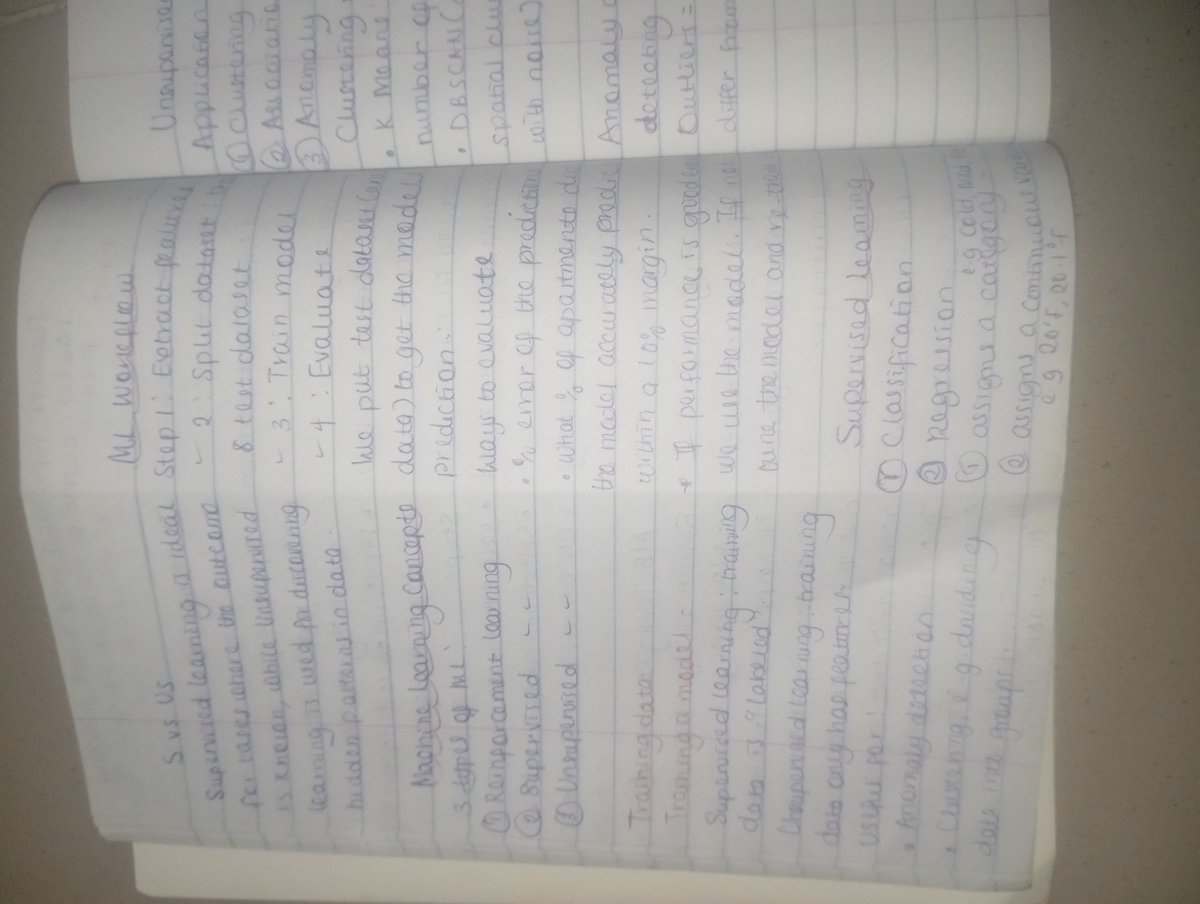 S vs US
Supervised learning is ideal
for cases where the outcome
is known, while unsupervised
learning is used for discovering
hidden patterns in data.
Machine learning concepts
3 types of ML
① Reinforcement learning
② Supervised - -
③ Unsupervised - -
Training data:
Training a model:
Supervised learning: training
data is "labeled"
Unsupervised learning: training
data only has features.
Useful for:
• Anomaly detection
• Clustering, e.g dividing
data into groups.
ML Workflow
Step 1: Extract features
- 2: Split dataset:
& test dataset.
- 3: Train model
- 4: Evaluate
We put test dataset
data) to get the models
prediction.
Ways to evaluate
• % error of the prediction
• What % of apartments
the model accurately
within a 10% margin.
If performance is
we use the model. If
tune the model and
Supervised Learning
① Classification
② Regression
① assigns a category. e.g cold
② assigns a continuous
e.g 20.5, 20.1°F
Unsupervised
Application
① Clustering
②
③ Anomaly
Clustering
• K Means:
number of
• DBSCAN
spatial
with noise)
Anomaly
detecting
Outliers =
differ from